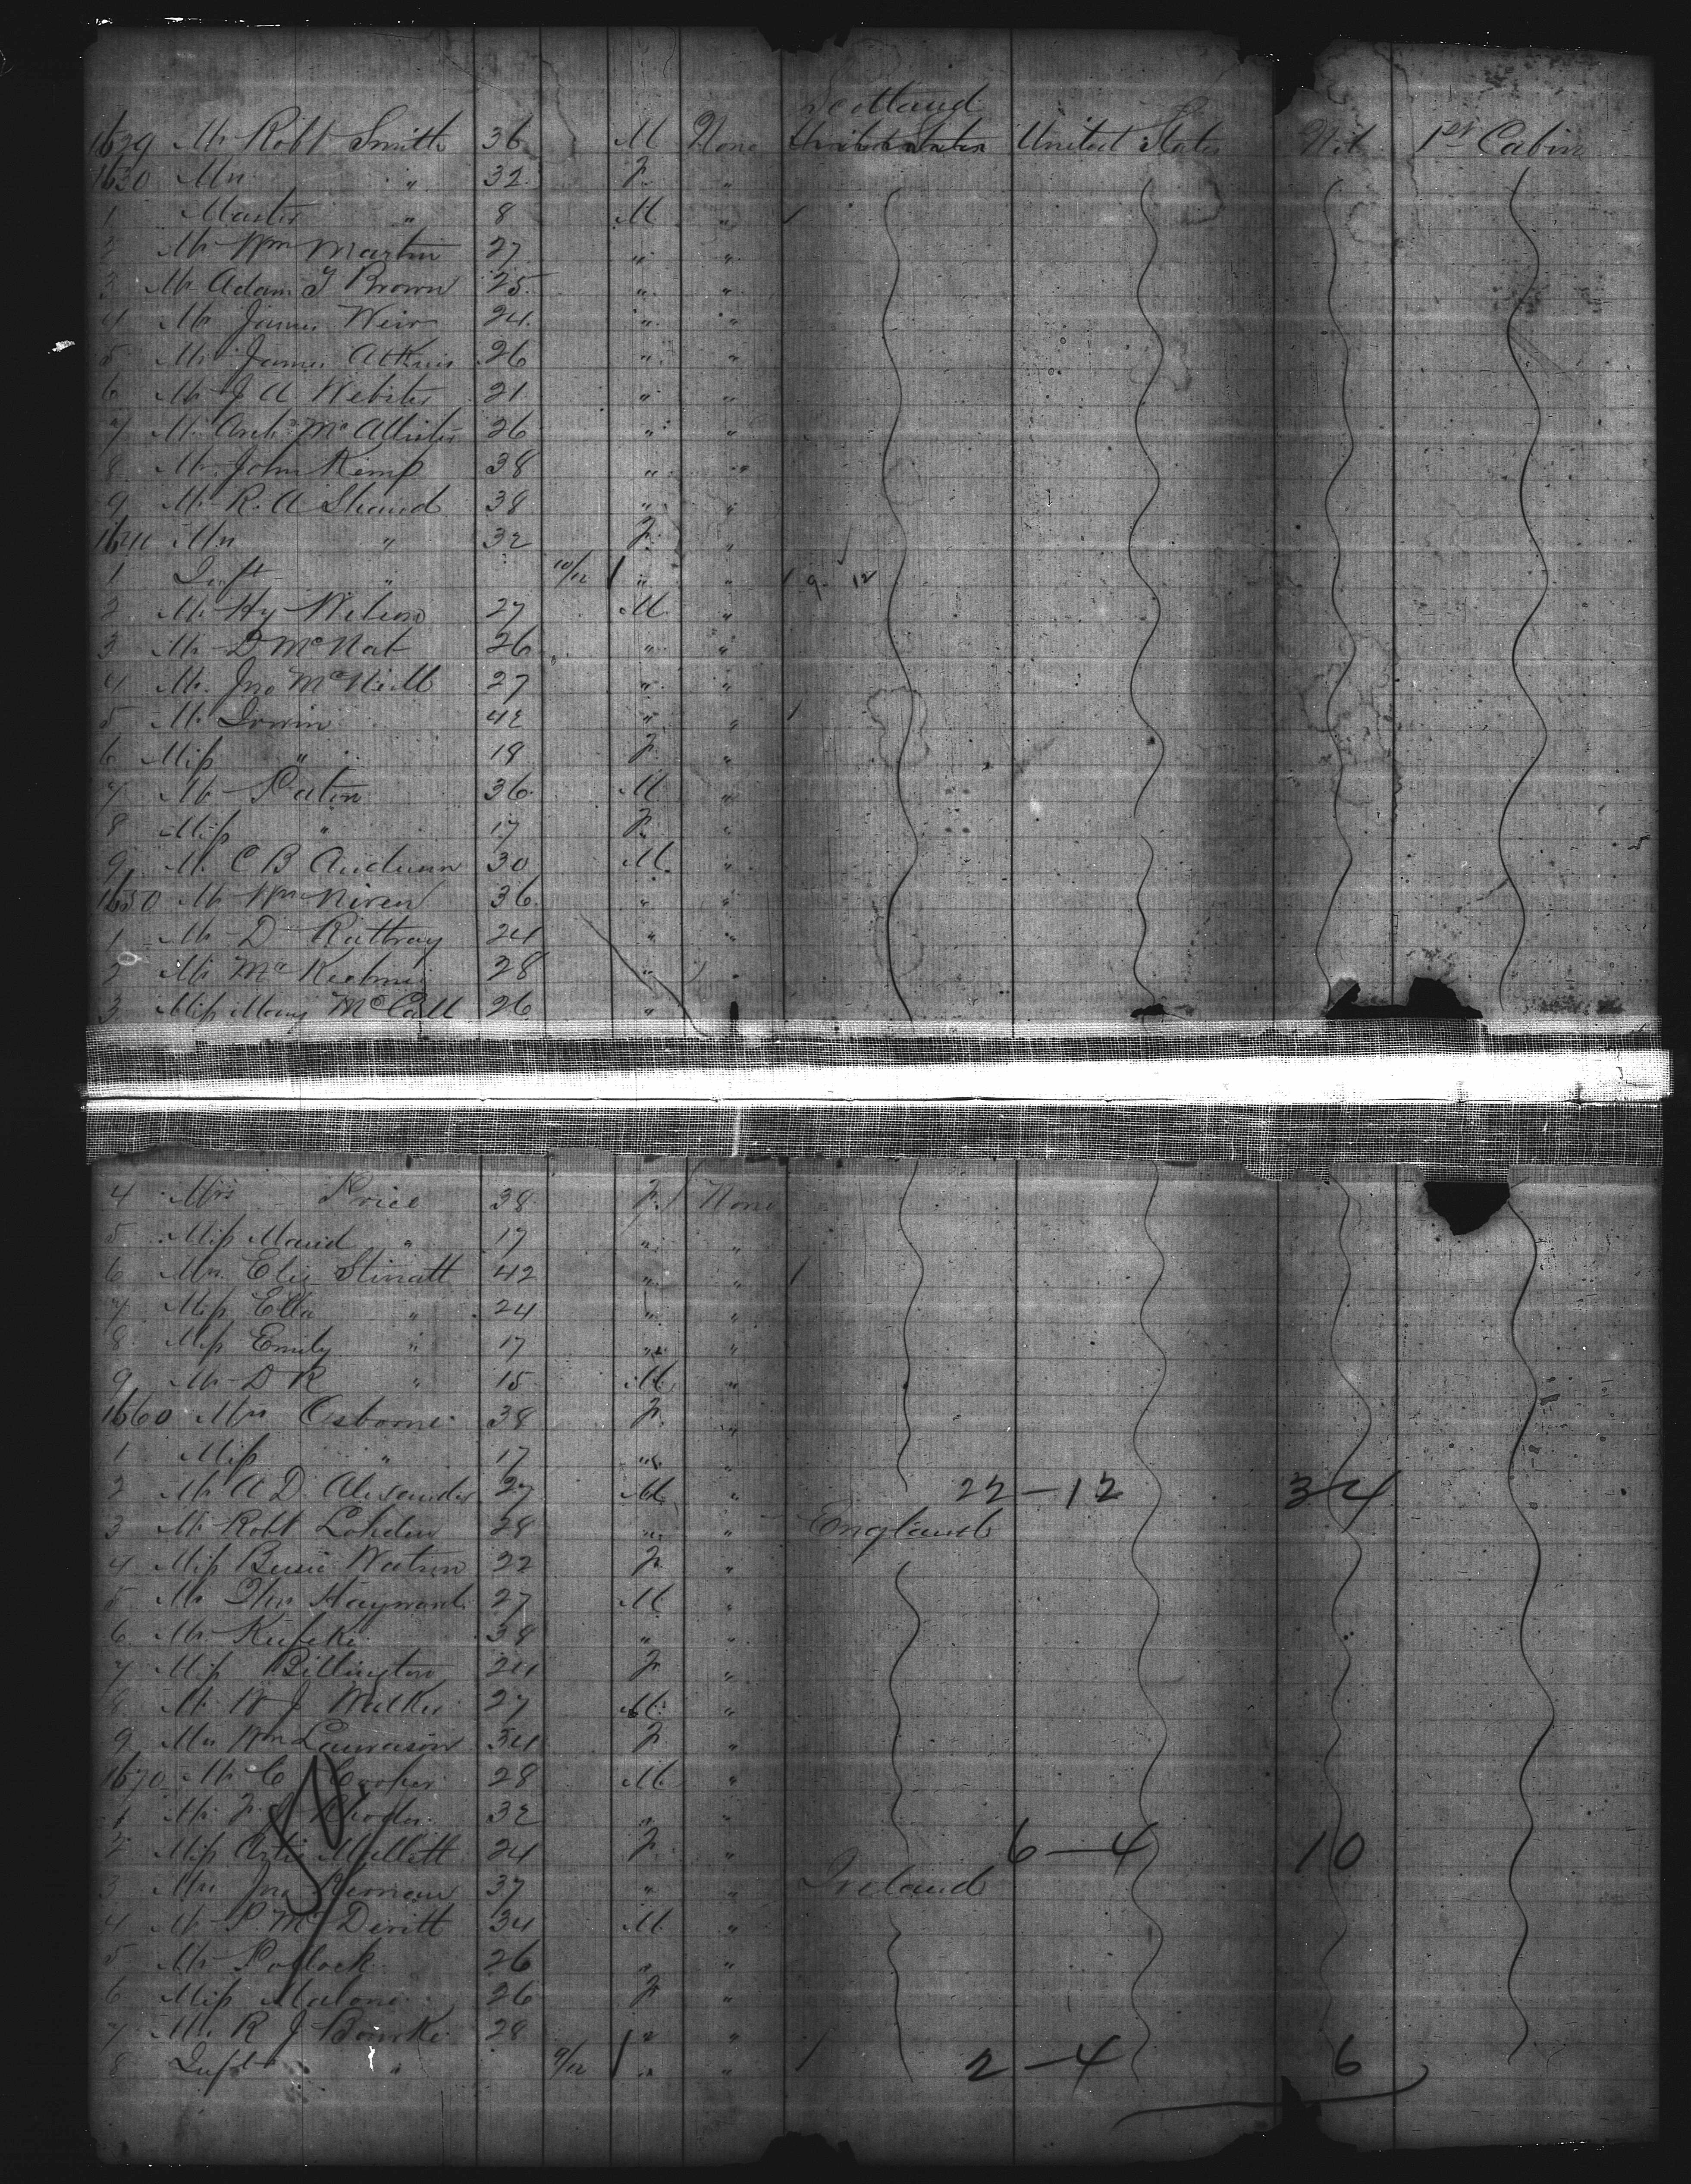 Scotland
1629 Mr Robt Smith 36 M None United States United States Nil 1st Cabin
1630 Mrs " 32 F "
1 Master " 8 M "
2 Mr Wm Martin 27 " "
3 Mr Adam J Brown 25 " "
4 Mr James Weir 24 " "
5 Mr James Atkins 26 " "
6 Mr J A Webster 21 " "
7 Mr Arch McAllister 26 " "
8 Mr John Kemp 38 " "
9 Mr R. A Shand 38 " "
1640 Mrs " 32 F "
1 Inft " 10/12 " " 9 12
2 Mr Hy Wilson 27 M "
3 Mr D McNab 26 " "
4 Mr. Jno McNeill 27 " "
5 Mr Irwin 42 " "
6 Miss " 19 F "
7 Mr Paton 36 M "
8 Miss " 17 F "
9 Mr C B Anderson 30 M "
1650 Mr Wm Niven 36 " "
1 Mr D Rattray 24 " "
2 Mr Mc 28 " "
3 Miss Mary McCall 26 "
4 Mrs Price 38 F None
5 Miss Maud " 17 " "
6 Mrs Eliz Stinatt 42 " "
7 Miss Ella " 24 " "
8 Miss Emily " 17 " "
9 Mr D R " 15 M "
1660 Mrs Osborne 38 F "
1 Miss " 17 " "
2 Mr A D Alexander 27 M " 22-12 34
3 Mr Robt 28 " " England
4 Miss Watson 22 F "
5 Mr Hayward 27 M "
6 Mr 38 " "
7 Miss Billington 24 F "
8 Mr W J Walker 27 M "
9 Mrs Wm Lawrason 34 F "
1670 Mr C Cooper 28 M "
1 Mr F 32 " "
2 Miss Mullett 24 F " 6-4 10
3 Mrs Jno 37 " " Ireland
4 Mr P. McDevitt 34 M "
5 Mr Pollock 26 " "
6 Miss Malone 26 F "
7 Mrs R J Bourke 28 " "
8 Inft " 9/12 " " 2-4 6